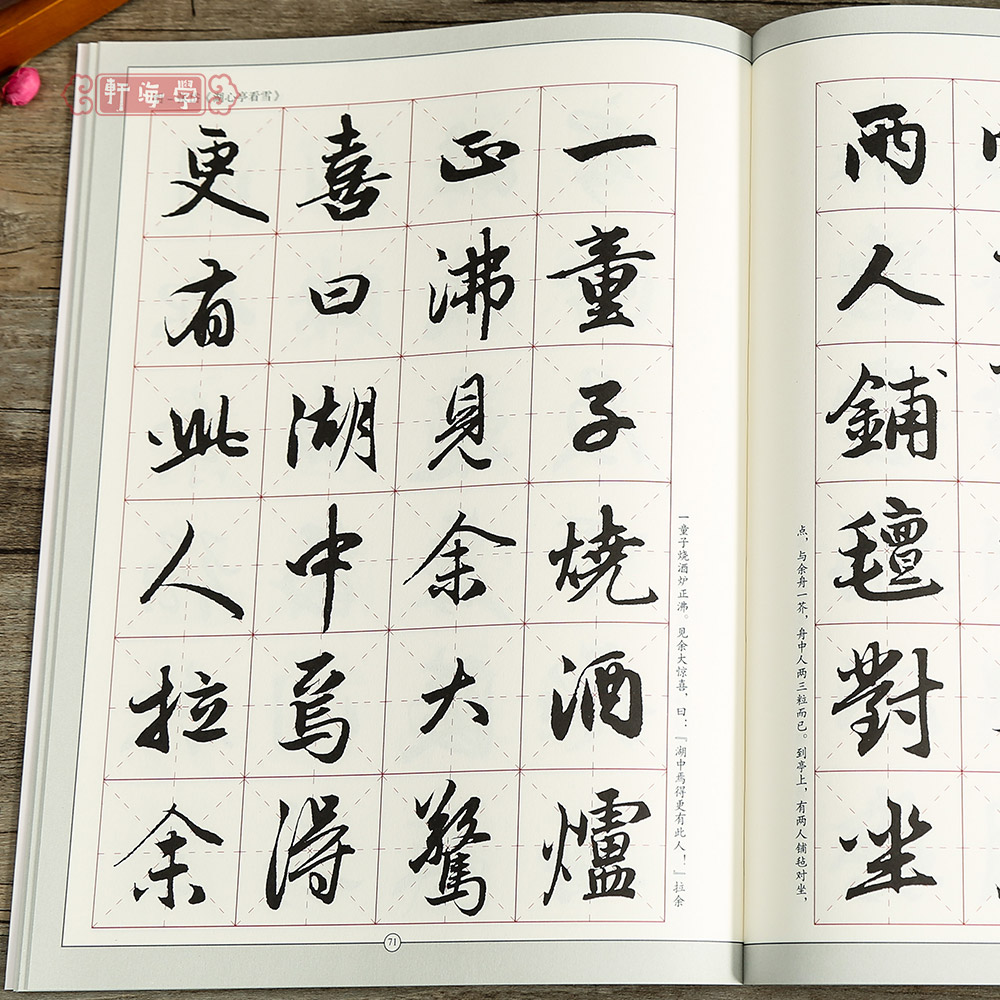 兩人鋪氈對坐
点，与余舟一芥，舟中人两三粒而已。到亭上，有两人铺毡对坐，
軒海學
心亭看雪》
一童子燒酒爐
正沸見余大驚
喜曰湖中焉得
更有此人拉余
一童子烧酒炉正沸。见余大惊喜，曰：『湖中焉得更有此人！』拉余
71